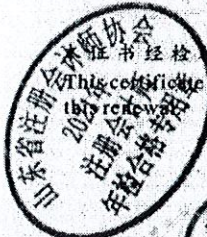 山东省注册会计师协会
证书经检
This certificate
this renewal
注册会
年检合格专用